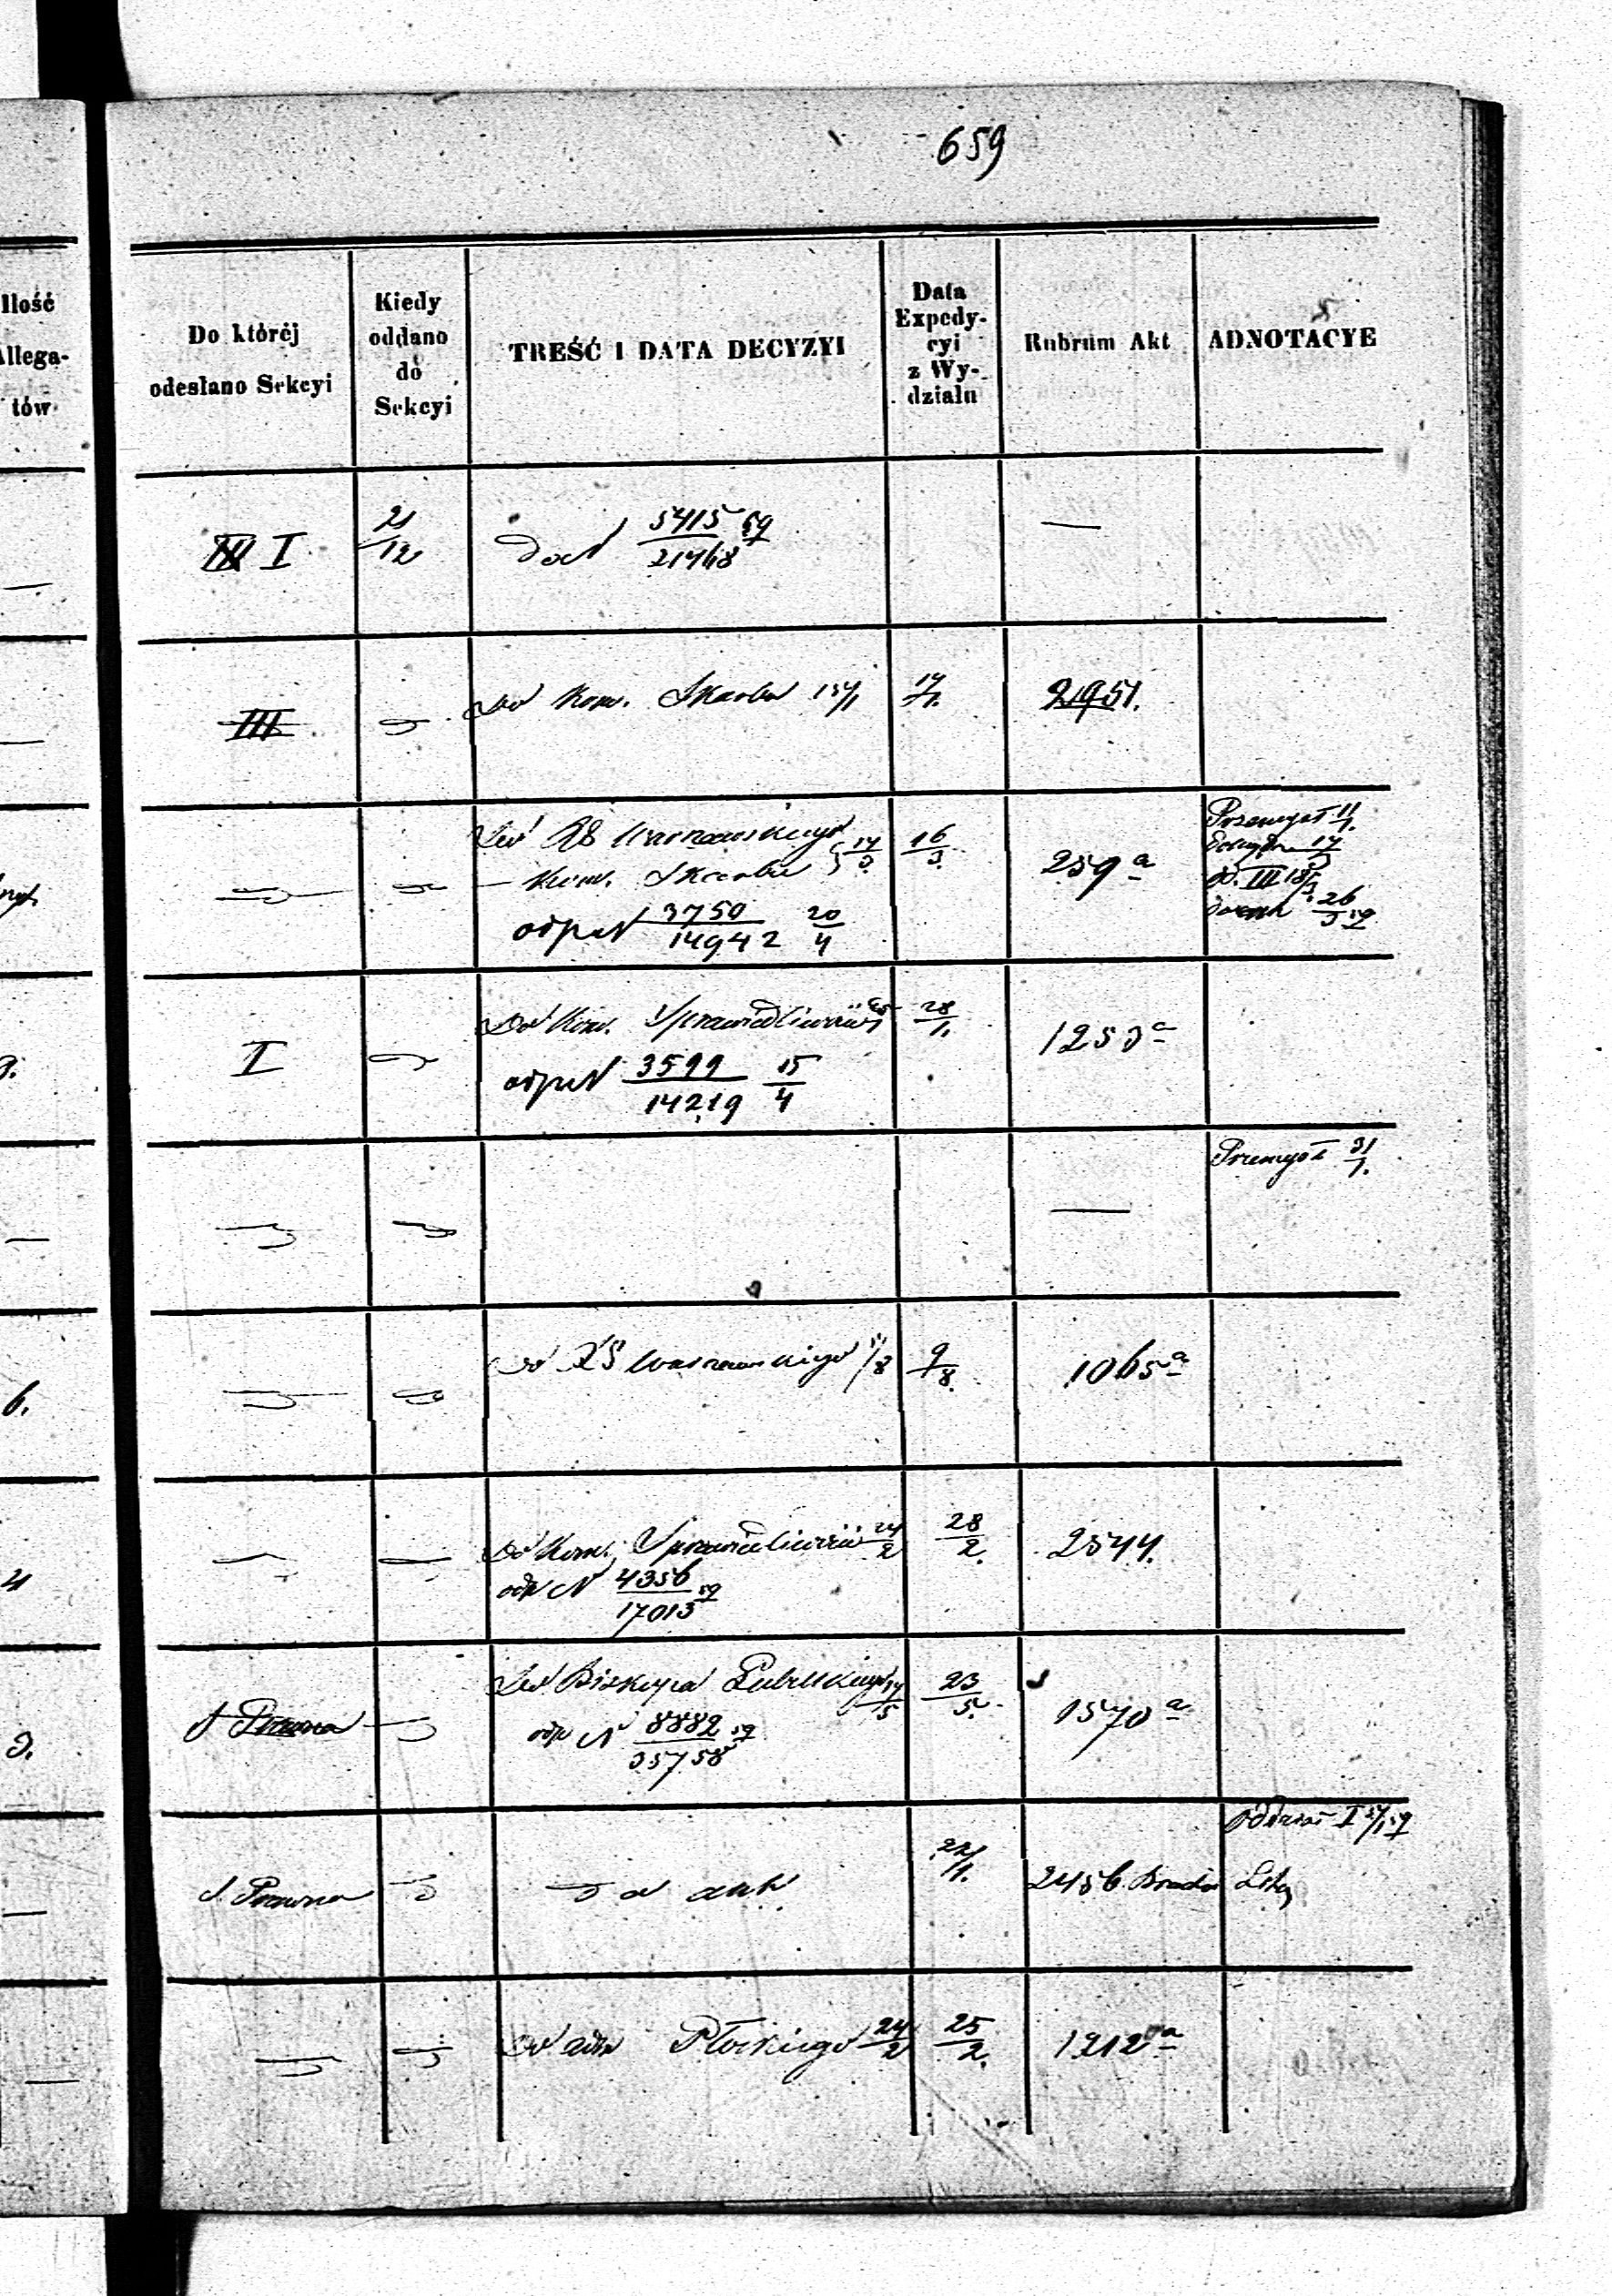 659
Ilość
Allega-
tów
Do któréj
odesłano Sekcyi
Kiedy
oddano
do
Sekcyi
TREŚĆ I DATA DECYZYI
Data
Expedy-
cyi
z Wy-
działu
Rubrum Akt
ADNOTACYE
I
21/12
do N 5415/21468 59
—
III
Do Kom. Skarbu 15/1
17/1.
21951.
Do RG Warszawskiego
— Kom. Skarbu } 14/3.
odp N 3750/14942 20/4
16/3.
259 a
Przemysł 11/1.
17/3
III 18/3
26/3 59
I
Do Kom. Sprawiedliwości
odp N 3599/14219 15/4
28/1.
1253 a
—
Przemysł 31/1.
Do RG Warszawskiego /8
9/8.
1065 a
6.
Do Kom. Sprawiedliwości 24/2
odp N 4356/17013 59
28/2.
2544.
4
S Prawna
Do Biskupa Lubelskiego 14/5
odp N 8882/35758 59
23/5.
1570 a
3.
S. Prawna
do akt
22/1.
2456.
I
Do adm Płockiego 24/2
25/2.
1212 a